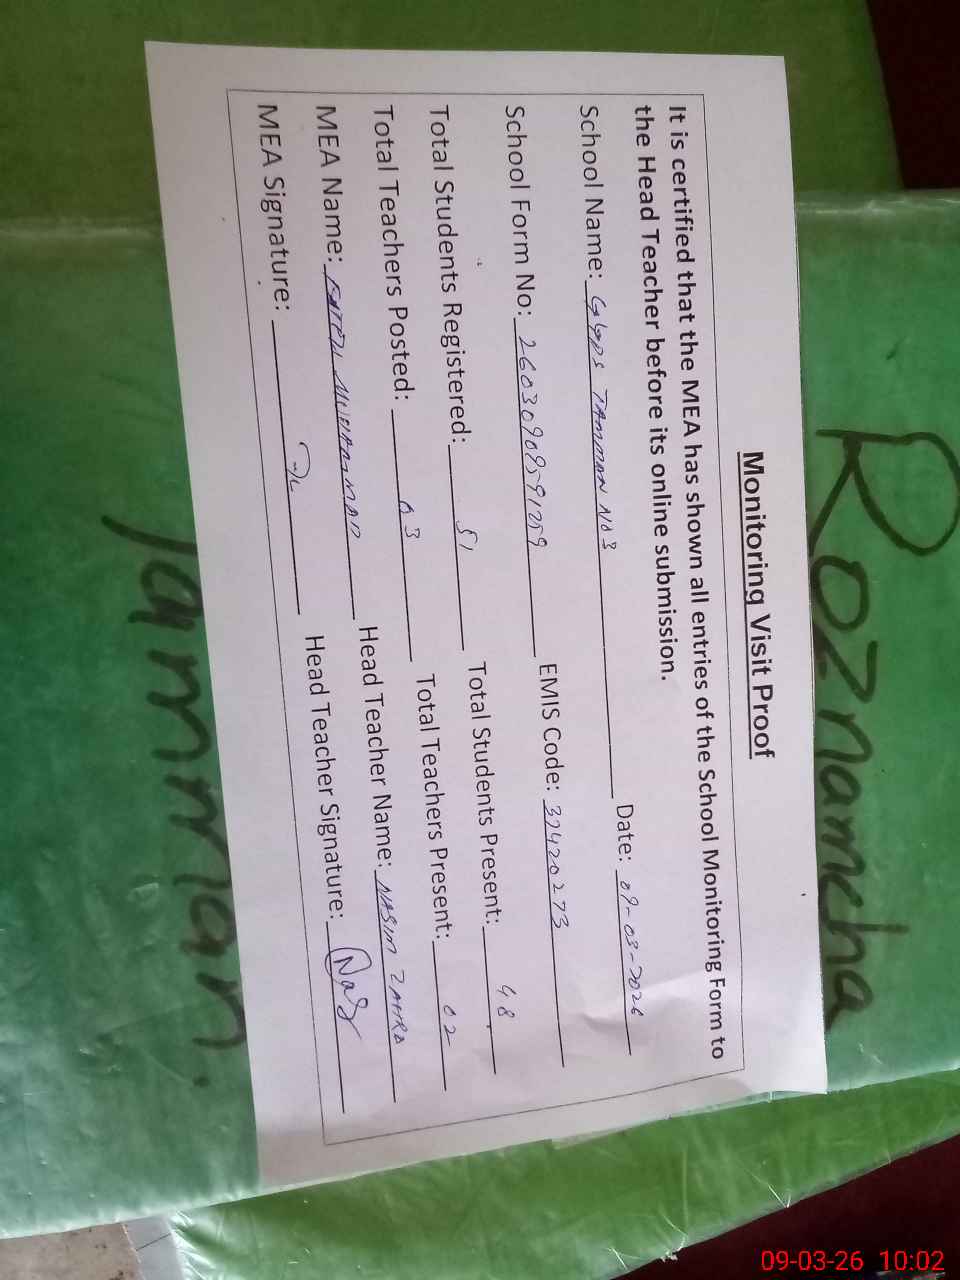 Roznamcha
Monitoring Visit Proof
It is certified that the MEA has shown all entries of the School Monitoring Form to
the Head Teacher before its online submission.
School Name: GGPS TAMMAN NO 3 Date: 09-03-2026
School Form No: EMIS Code: 37420273
Total Students Registered: 51 Total Students Present: 48
Total Teachers Posted: 03 Total Teachers Present: 02
MEA Name: FATEH MUHAMMAD Head Teacher Name: NASIM ZAHRA
MEA Signature: Head Teacher Signature: Nas
Tamman.
09-03-26 10:02